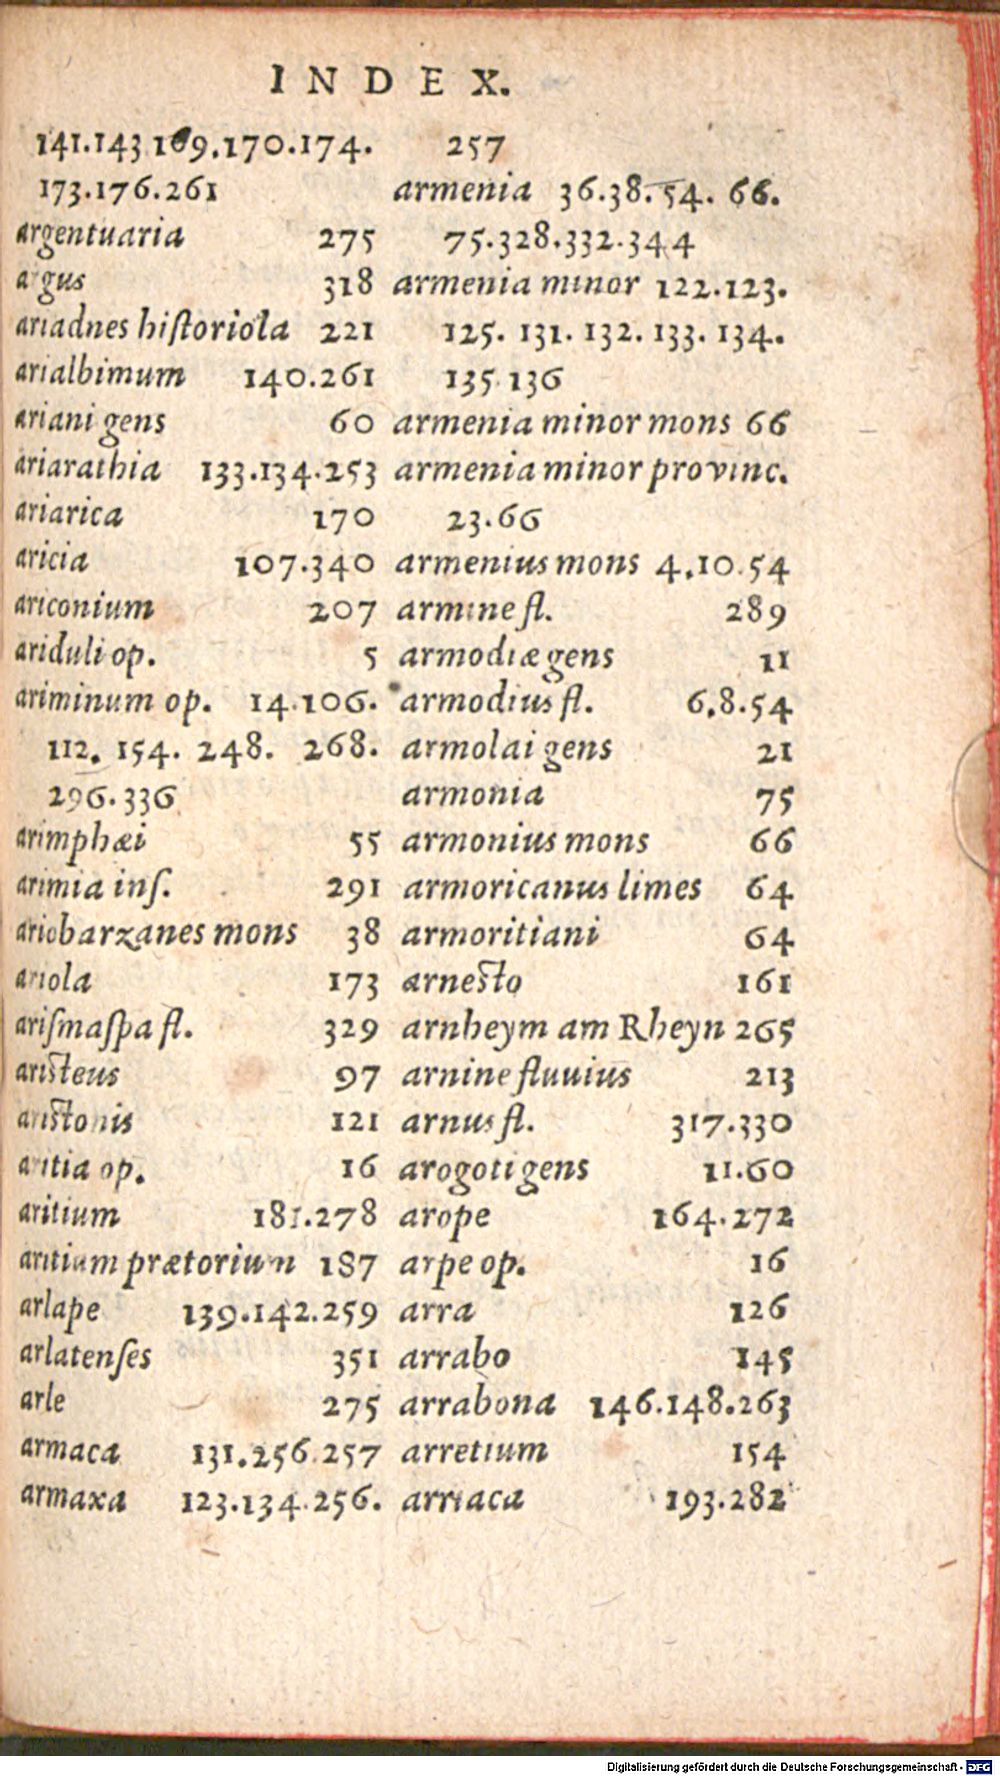 INDEX.
141.143.169.170.174.
173.176.261
argentuaria 275
argus 318
ariadnes hiſtoriola 221
arialbimum 140.261
ariani gens 60
ariarathia 133.134.253
ariarica 170
aricia 107.340
ariconium 207
ariduli op. 5
ariminum op. 14.106.
112. 154. 248. 268.
296.336
arimphæi 55
arimia inſ. 291
ariobarzanes mons 38
ariola 173
ariſmaſpa fl. 329
ariſteus 97
ariſtonis 121
aritia op. 16
aritium 181.278
aritium prætorium 187
arlape 139.142.259
arlatenſes 351
arle 275
armaca 131.256.257
armaxa 123.134.256.
257
armenia 36.38.54. 66.
75.328.332.344
armenia minor 122.123.
125. 131. 132. 133. 134.
135.136
armenia minor mons 66
armenia minor provinc.
23.66
armenius mons 4.10.54
armine fl. 289
armodiæ gens 11
armodius fl. 6.8.54
armolai gens 21
armonia 75
armonius mons 66
armoricanus limes 64
armoritiani 64
arneſto 161
arnheym am Rheyn 265
arnine fluuius 213
arnus fl. 317.330
arogoti gens 11.60
arope 164.272
arpe op. 16
arra 126
arrabo 145
arrabona 146.148.263
arretium 154
arriaca 193.282
Digitalisierung gefördert durch die Deutsche Forschungsgemeinschaft - DFG